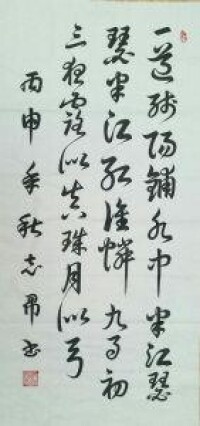 一道残陽鋪水中半江瑟
瑟半江红谁憐九月初
三夜露似真珠月似弓
丙申年秋志书